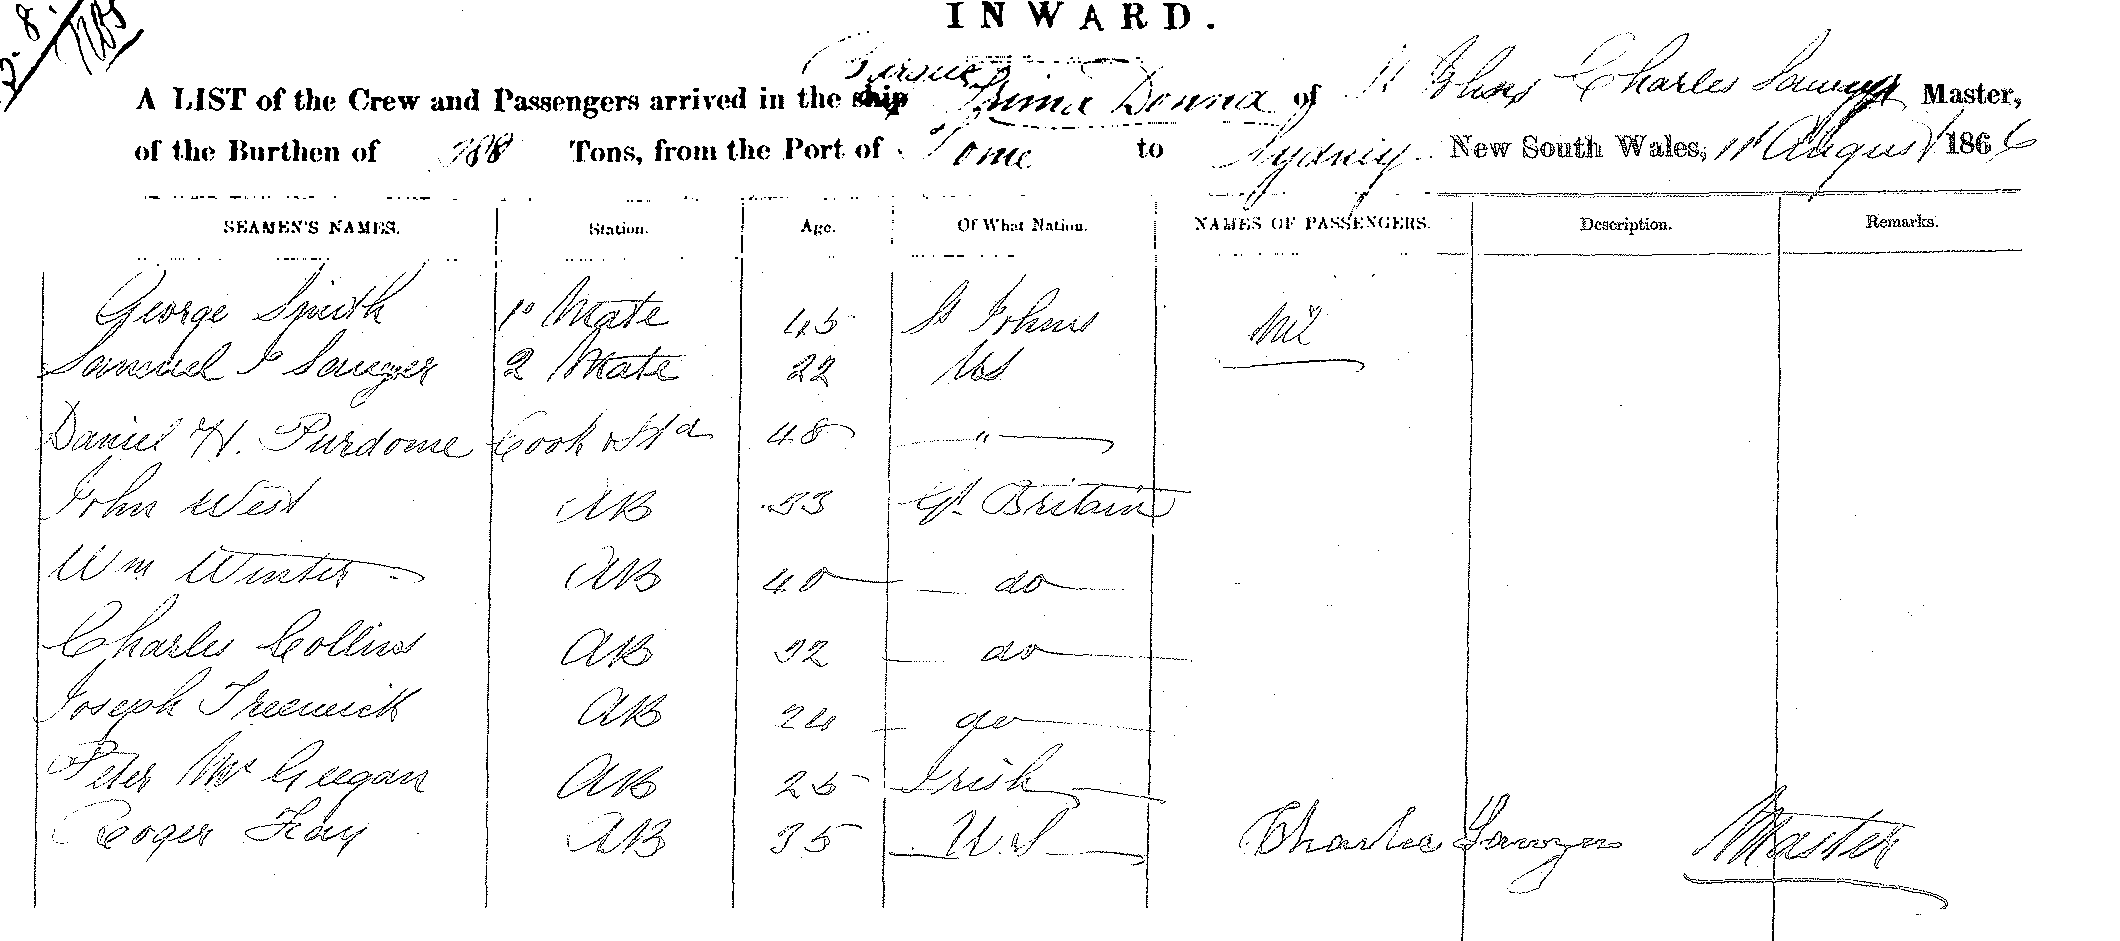 INWARD.
A LIST of the Crew and Passengers arrived in the ship Prima Donna of St Johns Charles Sawyer Master,
of the Burthen of Tons, from the Port of Tome to Sydney New South Wales, 11 August 1866
SEAMEN'S NAMES. Station. Age. Of What Nation. NAMES OF PASSENGERS. Description. Remarks.
George Smith 1o Mate 45 St Johns Nil
Samuel Sawyer 2 Mate 22 US
Daniel H. Purdome Cook & Std 48 "
John West AB 33 Gt Britain
Wm Winter AB 40 do
Charles Collins AB 32 do
Joseph Trenwick AB 24 do
Peter Mc Geegan AB 25 Irish
Roger Kay AB 35 U.S
Charles Sawyer Master